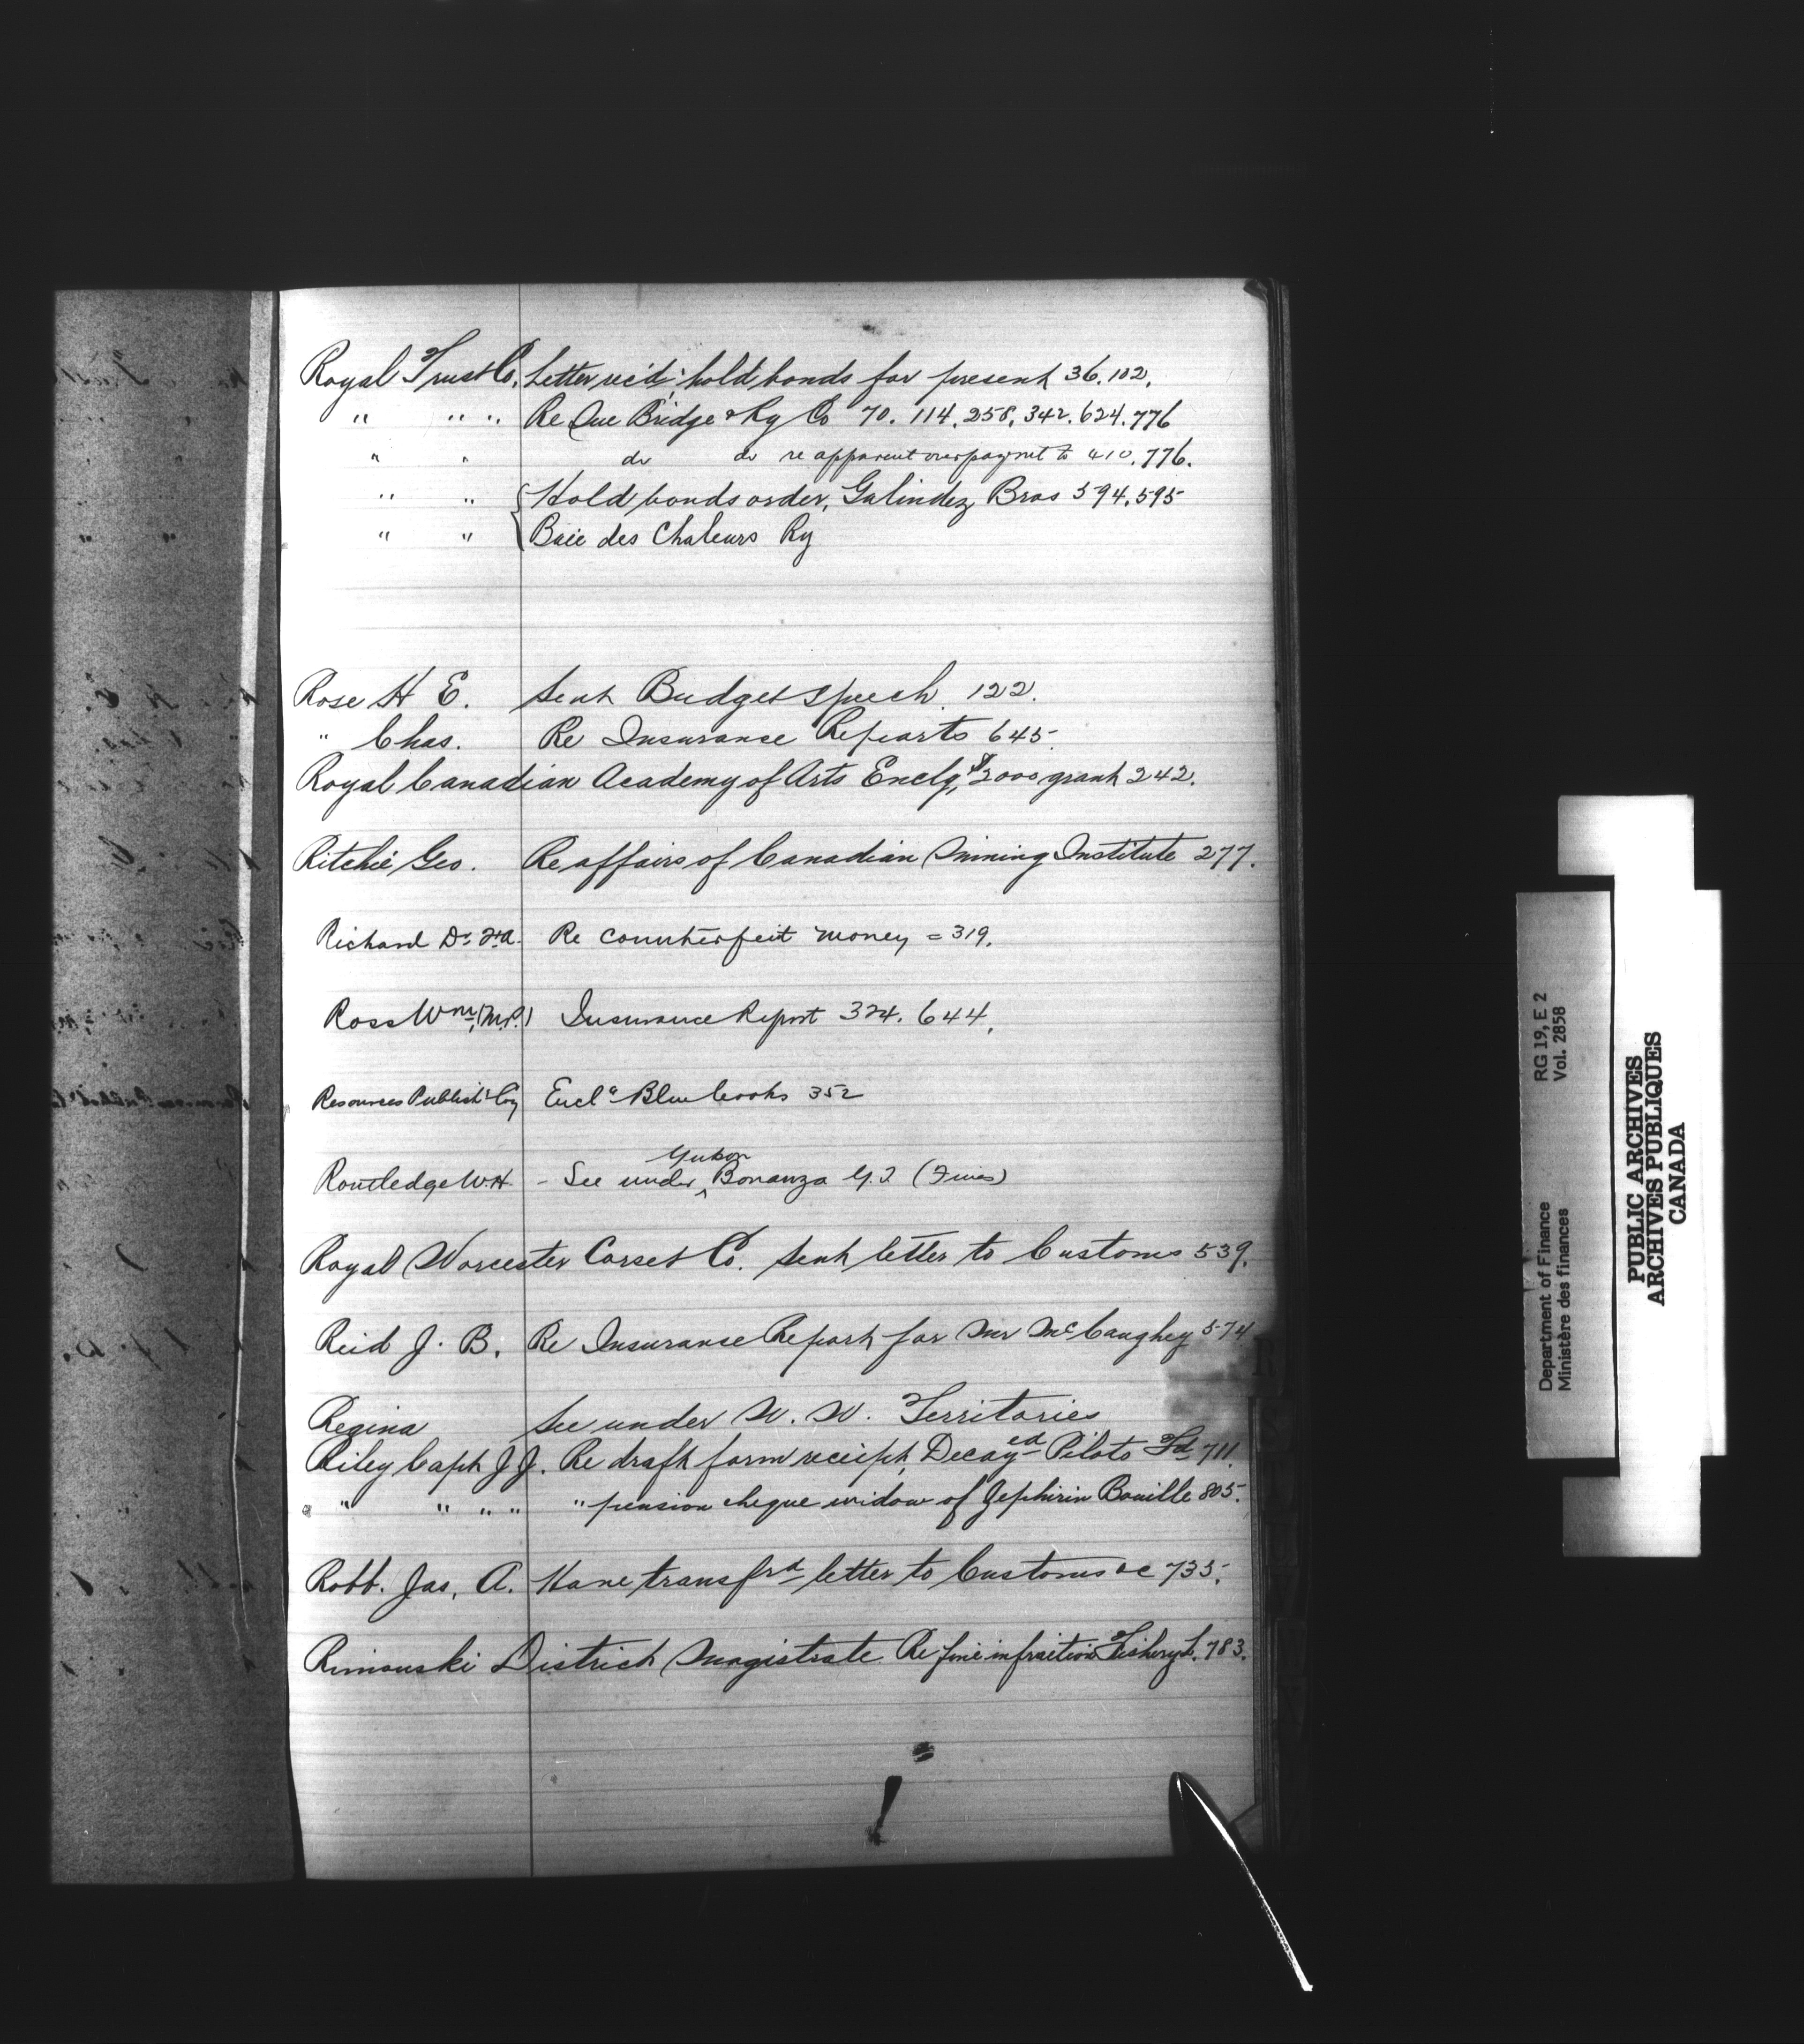 Royal Trust Co. Letter rec'd; hold bonds for present 36. 102.
" " " Re Que Bridge & Ry Co 70. 114. 258. 342. 624. 776
" " do do re apparent overpaymt to 410. 776.
" " Hold bonds order, Galindez Bros 594. 595
" " Baie des Chaleurs Ry
Rose H E. Sent Budget speech. 122.
" Chas. Re Insurance Reports 645.
Royal Canadian Academy of Arts Enclg. $2000 grant 242.
Ritchie Geo. Re affairs of Canadian Mining Institute 277.
Richard Dr. Re counterfeit money = 319.
Ross Wm. (M.P.) Insurance Report 324. 644.
Resources Publish'g Coy Enclg Blue books 352
Routledge W.H. - See under Yukon Bonanza Y.T. (Fines)
Royal Worcester Corset Co. Sent letter to Customs 539.
Reid J. B. Re Insurance Report for Mr McCaughey 574
Regina See under N. W. Territories
Riley Capt J J. Re draft form receipt, Decayed Pilots Fd 711.
" " " " " pension cheque widow of Zephirin Bouille 805.
Robb. Jas. A. Have transfrd letter to Customs &c 735.
Rimouski District Magistrate. Re fine infraction Fishery L. 783.
R
Department of Finance RG 19, E 2
Ministère des finances Vol. 2858
PUBLIC ARCHIVES
ARCHIVES PUBLIQUES
CANADA